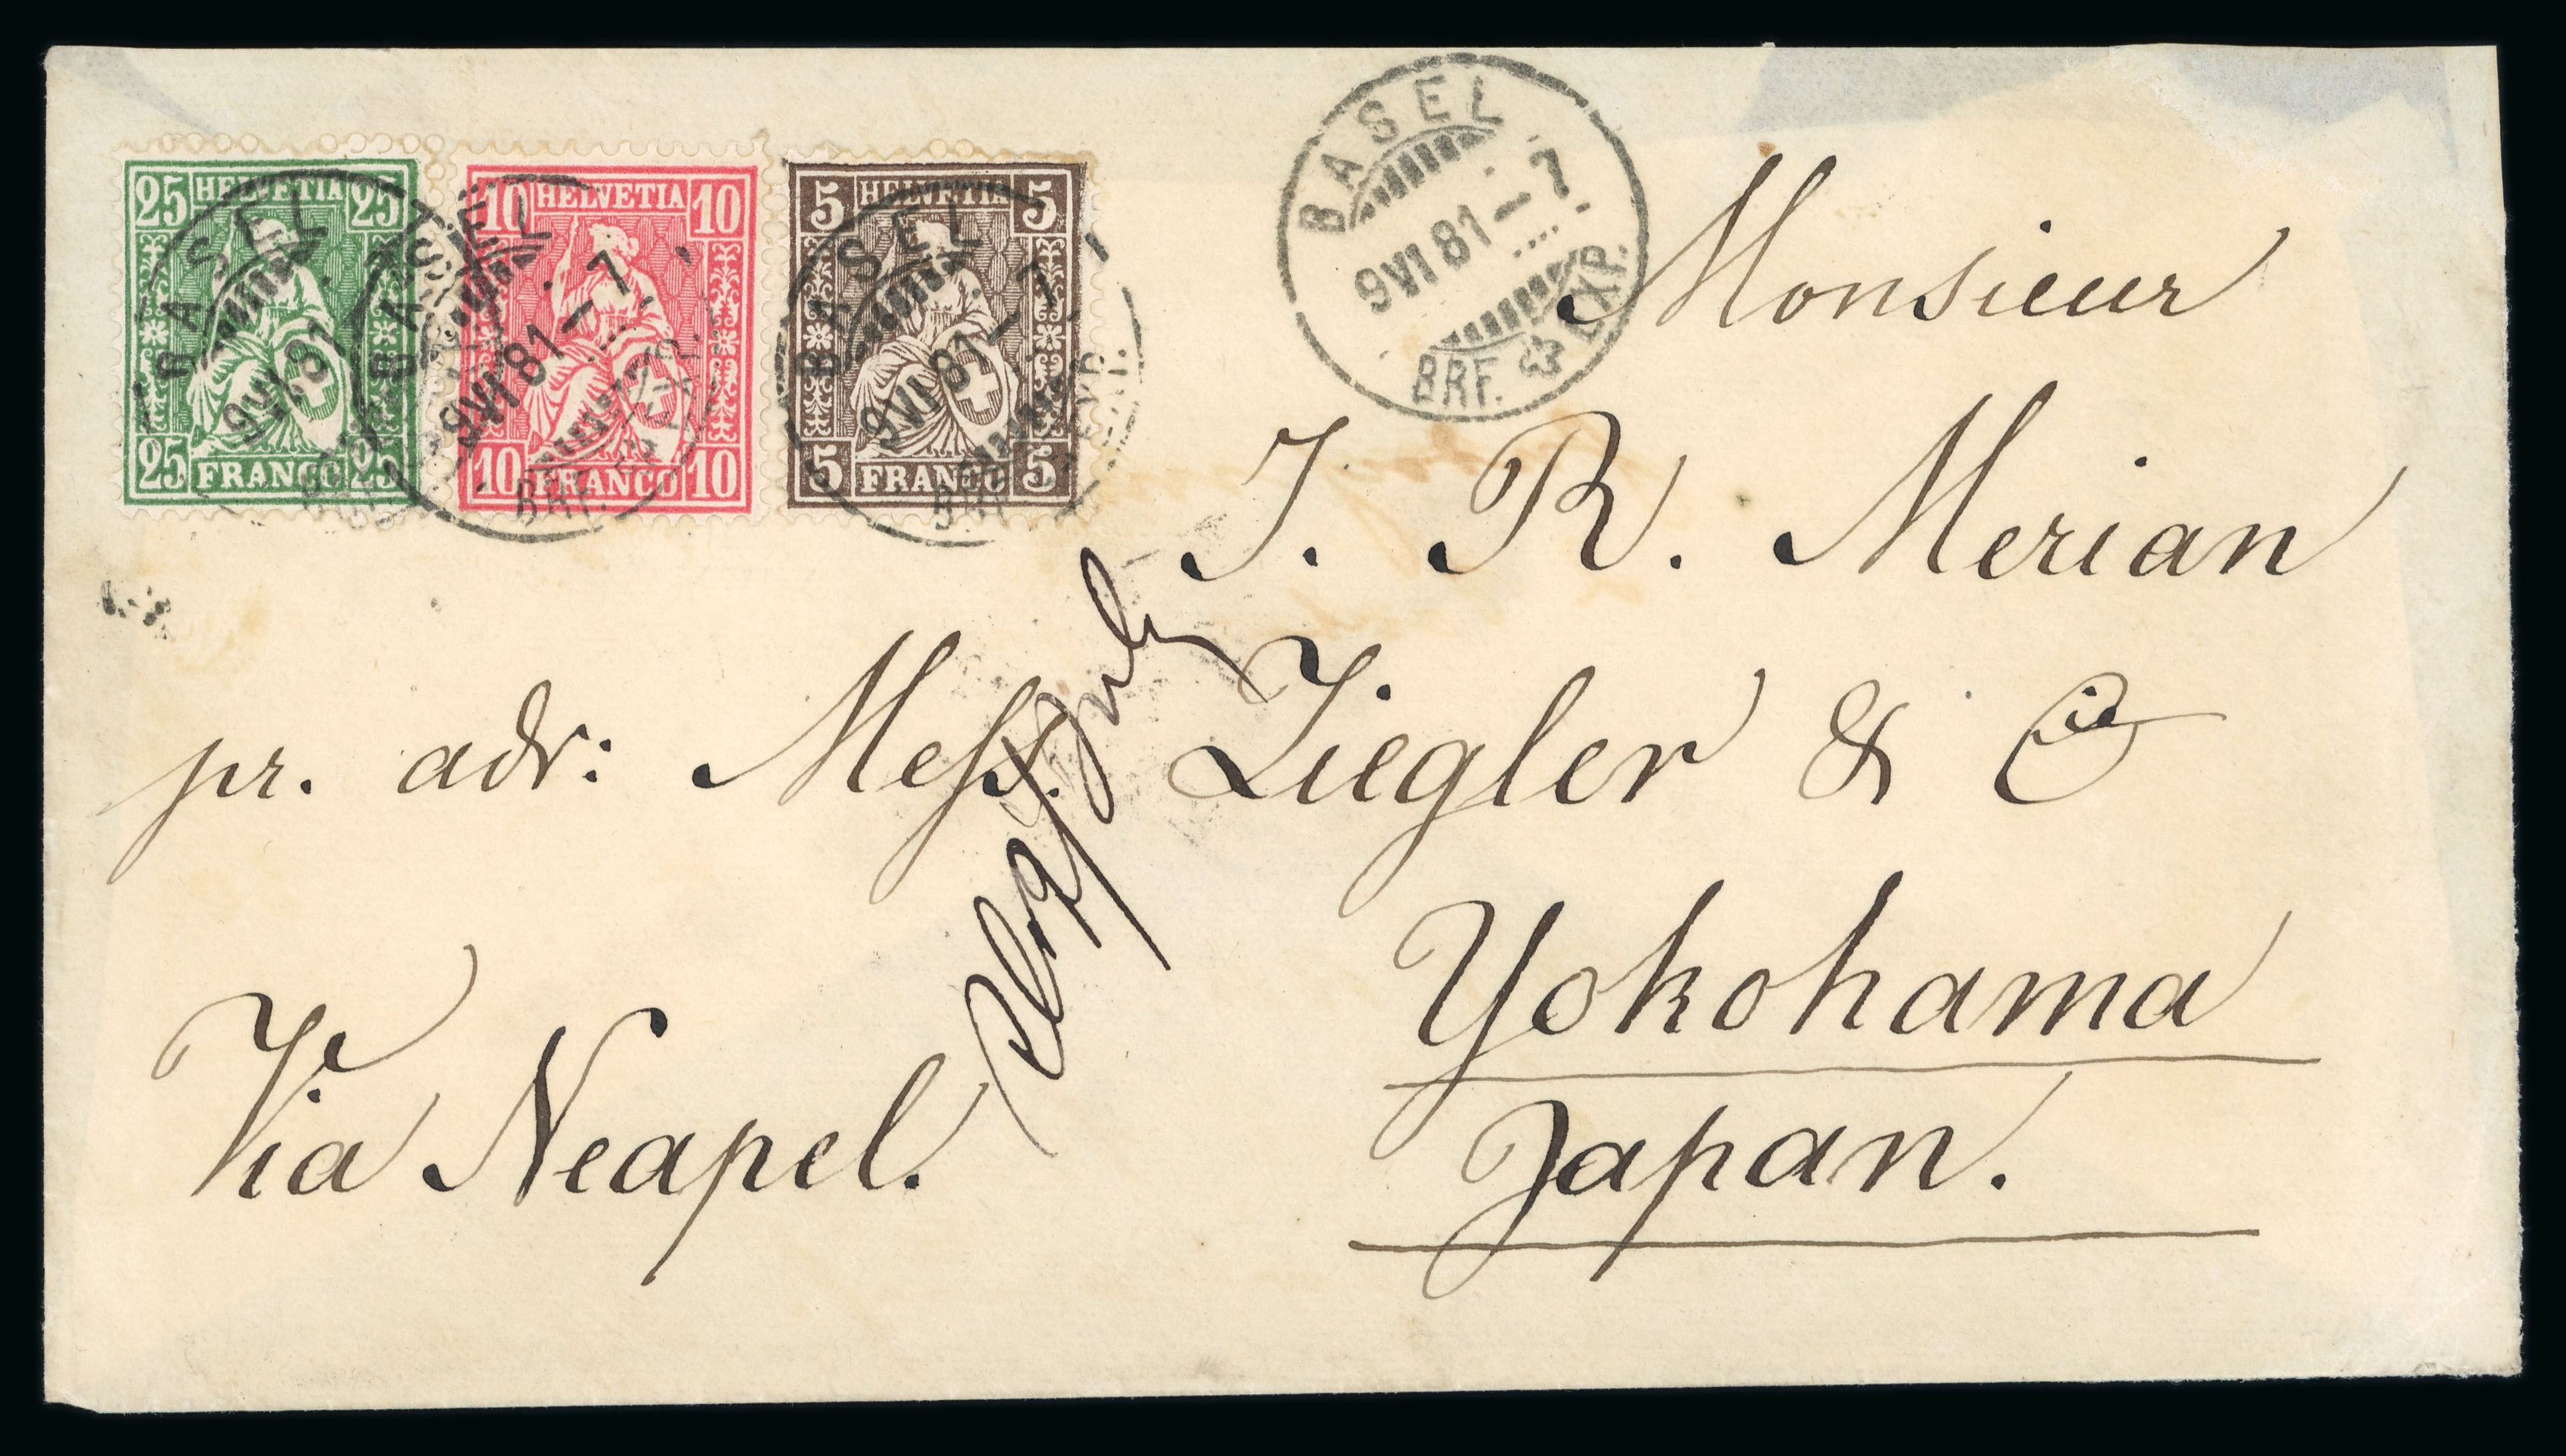 25 HELVETIA 25
25 FRANCO 25
10 HELVETIA 10
10 FRANCO 10
5 HELVETIA 5
5 FRANCO 5
BASEL
9 VI 81
BASEL
9 VI 81–7
BRF. EXP.
BASEL
9 VI 81–7
BRF. EXP.
BASEL
9 VI 81–7
BRF. EXP.
Monsieur
J. R. Merian
pr. adr: Mess. Ziegler & Cie
Yokohama
Japan.
Via Neapel.